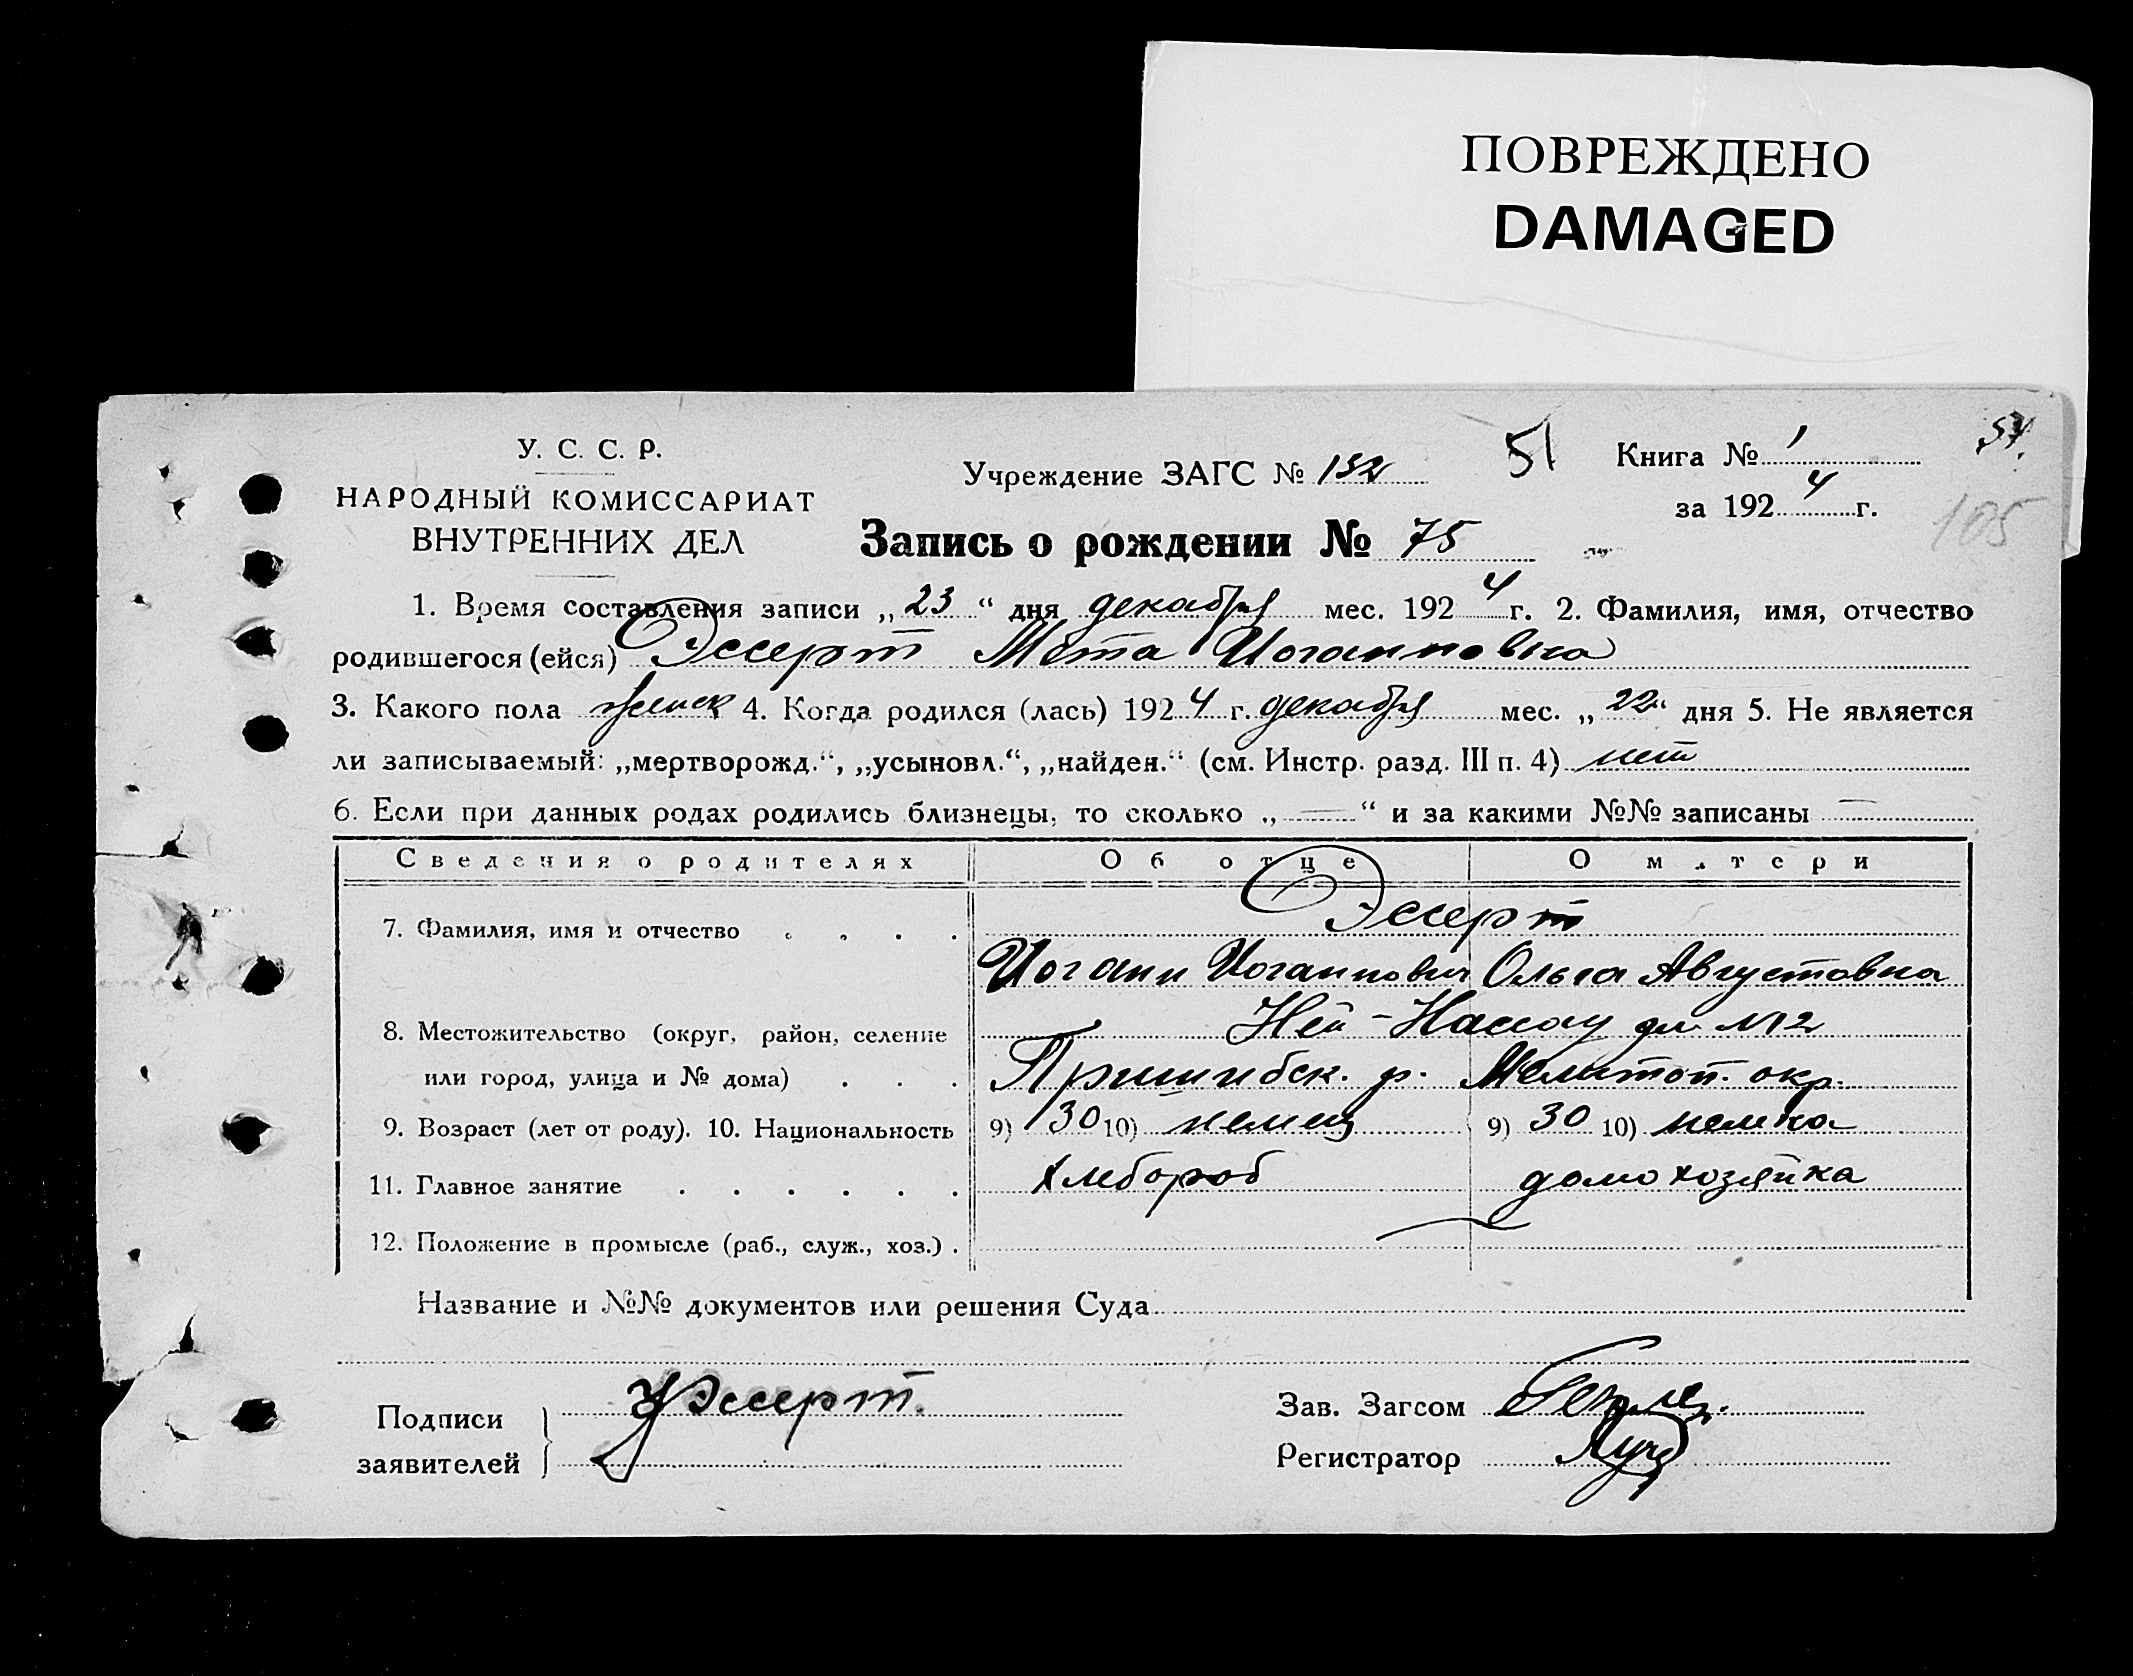 ПОВРЕЖДЕНО
DAMAGED
У. С. С. Р.
НАРОДНЫЙ КОМИССАРИАТ
ВНУТРЕННИХ ДЕЛ
Учреждение ЗАГС № 132
51
Книга № 1
за 1924 г.
105
Запись о рождении № 75
1. Время составления записи „23“ дня декабря мес. 1924 г. 2. Фамилия, имя, отчество
родившегося (ейся) Эссерт Мета Иоганновна
3. Какого пола женск 4. Когда родился (лась) 1924 г. декабря мес. „22“ дня 5. Не является
ли записываемый: „мертворожд.“, „усыновл.“, „найден.“ (см. Инстр. разд. III п. 4) нет
6. Если при данных родах родились близнецы, то сколько „—“ и за какими №№ записаны —
Сведения о родителях Об отце О матери
Эссерт
7. Фамилия, имя и отчество . . . .
Иоганн Иоганнович Ольга Августовна
Ней-Нассау дм №2
8. Местожительство (округ, район, селение
или город, улица и № дома) . . . Пришибск. р. Мелитоп. окр.
9. Возраст (лет от роду). 10. Национальность 9) 30 10) немец 9) 30 10) немка
11. Главное занятие . . . . . . хлебороб домохозяйка
12. Положение в промысле (раб., служ., хоз.) . —
Название и №№ документов или решения Суда
Подписи
заявителей } Эссерт.
Зав. Загсом
Регистратор